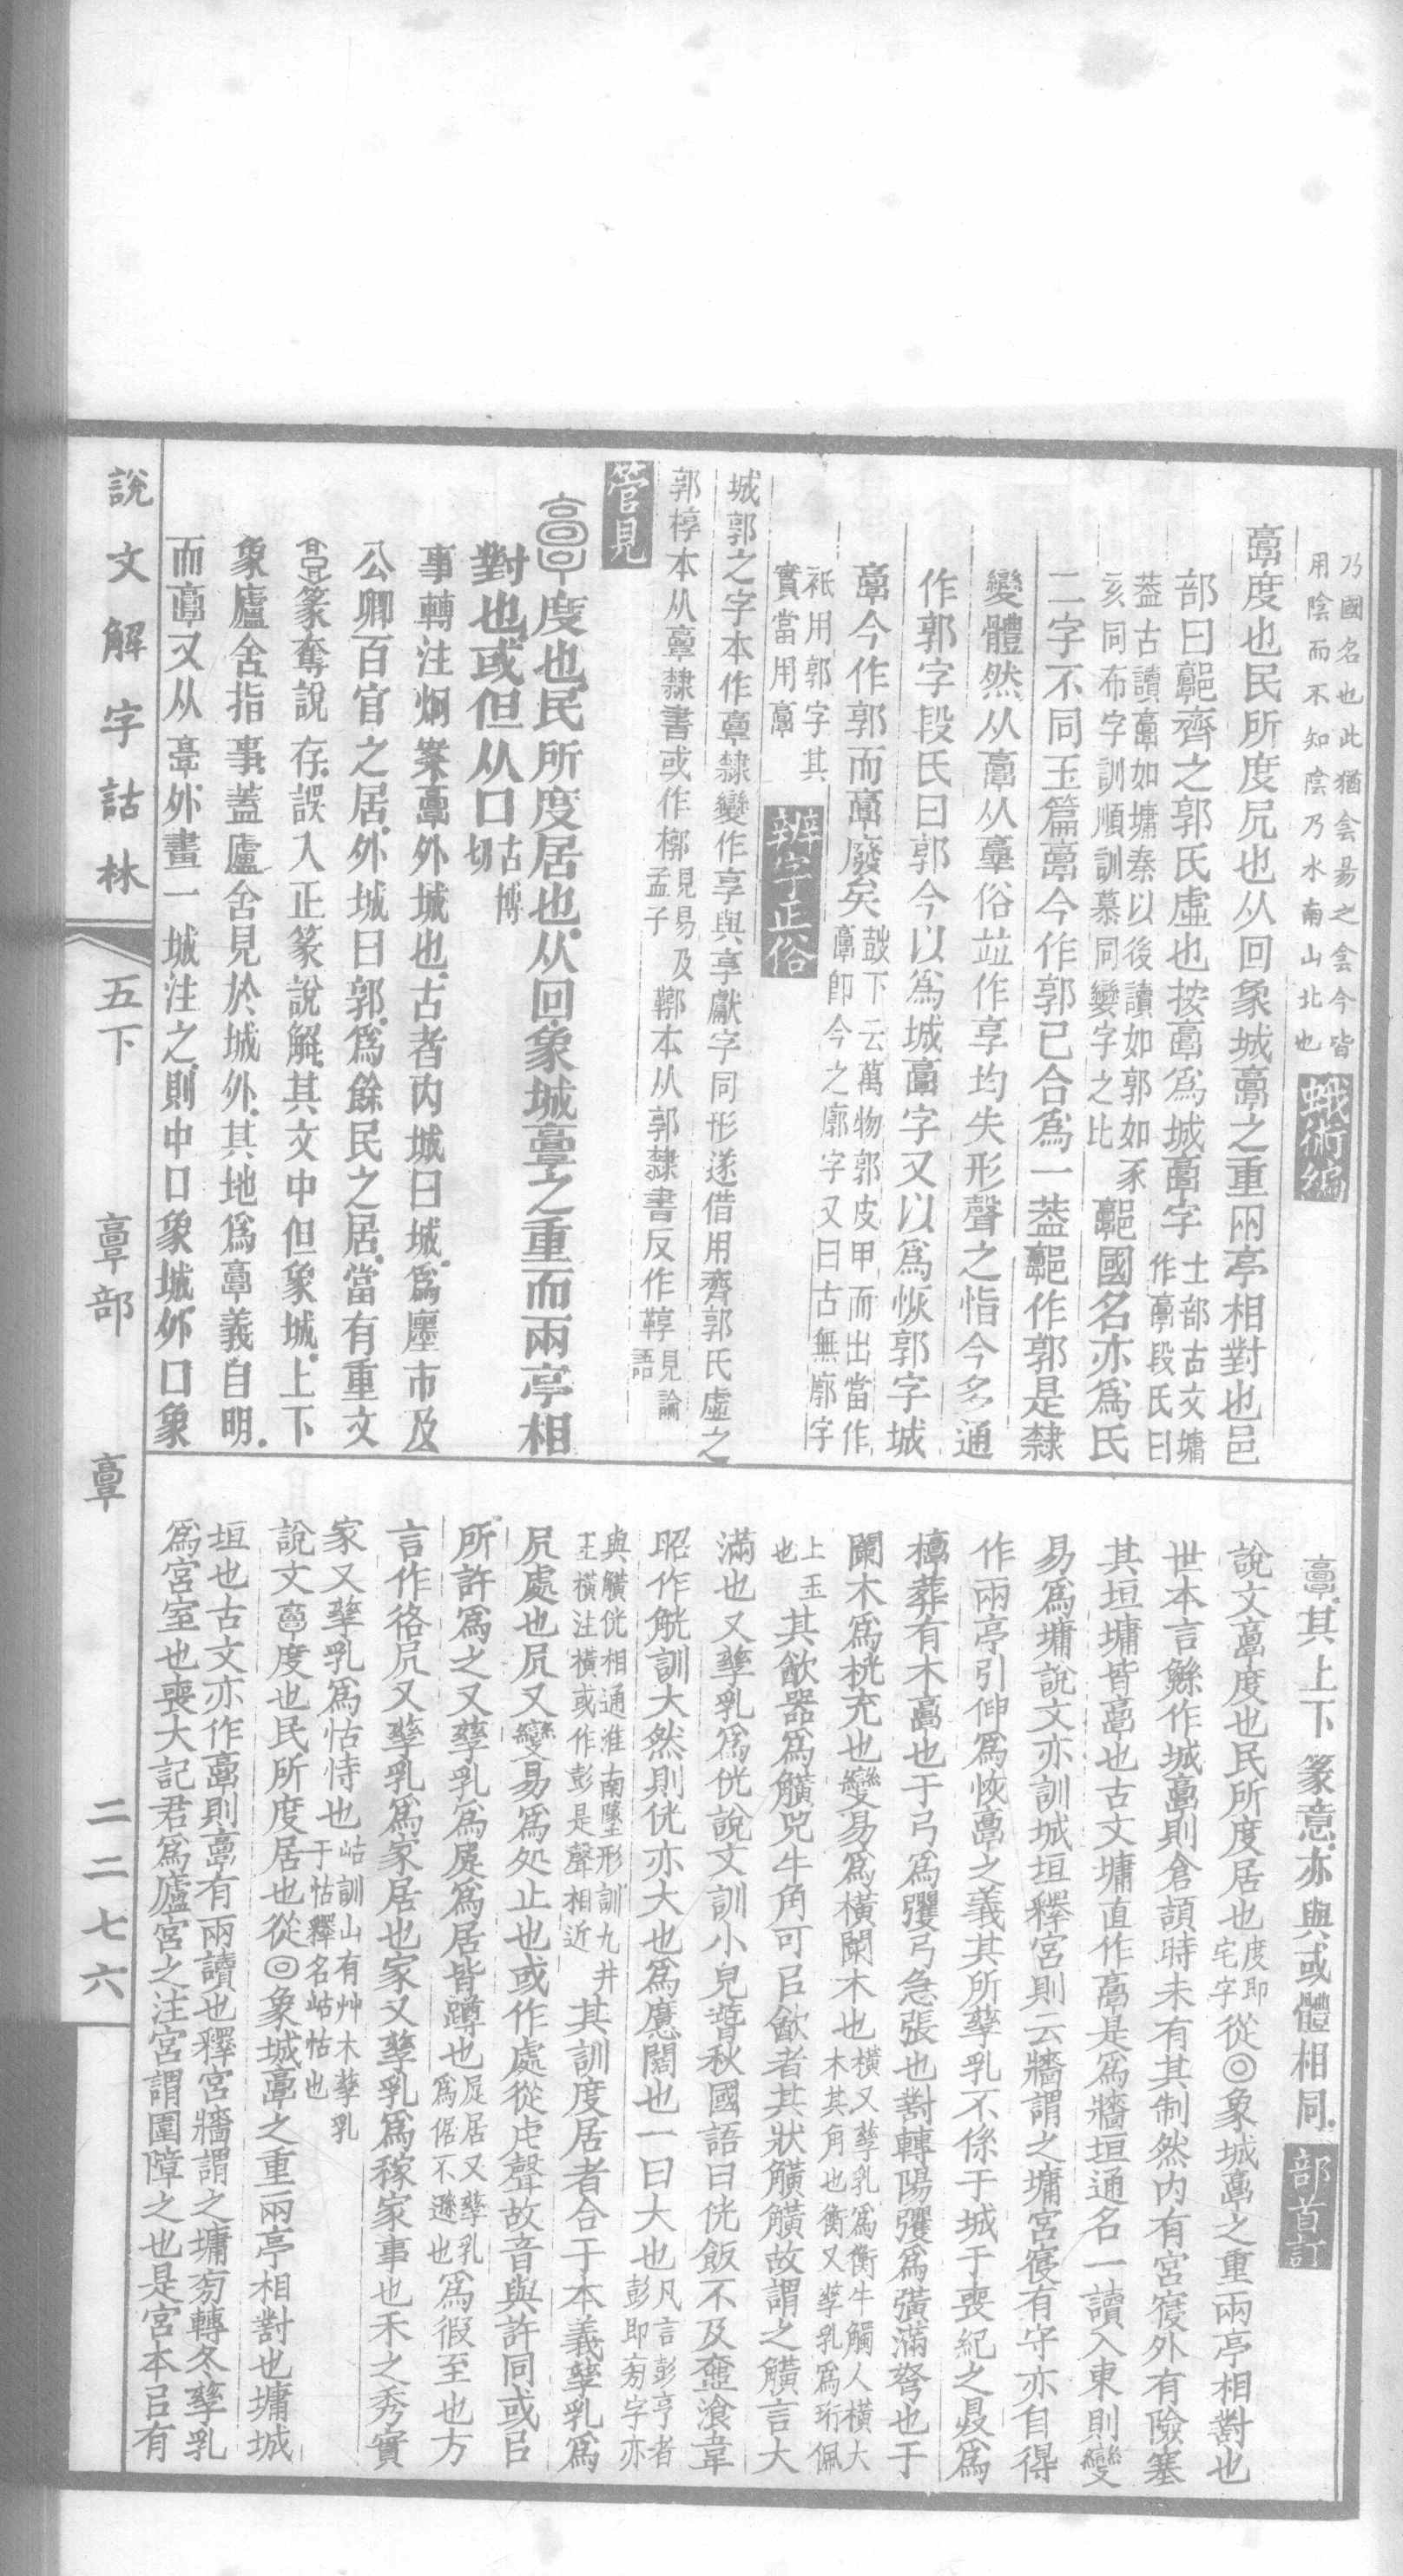 乃國名也此猶侌昜之侌今皆
用陰而不知陰乃水南山北也
蛾術編
𩫏度也民所度凥也从回象城𩫏之重兩亭相對也邑
部曰𨞓齊之郭氏虛也按𩫏爲城𩫏字
士部古文墉
作𩫏段氏曰
葢古讀𩫏如墉秦以後讀如郭如豕
亥同布字訓順訓慕同變字之比
𨞓國名亦爲氏
二字不同玉篇𩫏今作郭已合爲一葢𨞓作郭是隸
變體然从𩫏从𦎫俗竝作享均失形聲之恉今多通
作郭字段氏曰郭今以爲城𩫏字又以爲恢郭字城
𩫏今作郭而𩫏廢矣
鼓下云萬物郭皮甲而出當作
𩫏卽今之廓字又曰古無廓字
祇用郭字其
實當用𩫏
辨字正俗
城郭之字本作𩫏隸變作享與享獻字同形遂借用齊郭氏虛之
郭椁本从𩫏隸書或作槨
見易及
孟子
鞹本从郭隸書反作鞟
見論
語
管見
𩫏度也民所度居也从回象城𩫏之重而兩亭相
對也或但从口
古博
切
事轉注烱案𩫏外城也古者內城曰城爲廛市及
公卿百官之居外城曰郭爲餘民之居當有重文
篆奪說存誤入正篆說解其文中但象城上下
象廬舍指事蓋廬舍見於城外其地爲𩫏義自明
而𩫏又从𩫏外畫一城注之則中口象城外口象
𩫏其上下篆意亦與或體相同
部首訂
說文𩫏度也民所度居也
度卽
宅字
從◎象城𩫏之重兩亭相對也
世本言鯀作城𩫏則倉頡時未有其制然內有宮寑外有險塞
其垣墉皆𩫏也古文墉直作𩫏是爲牆垣通名一讀入東則變
易爲墉說文亦訓城垣釋宮則云牆謂之墉宮寑有守亦自得
作兩亭引伸爲恢𩫏之義其所孳乳不係于城于喪紀之㝡爲
槨葬有木𩫏也于弓爲彏弓急張也對轉陽彏爲彉滿弩也于
闌木爲桄充也變易爲橫闌木也
橫又孳乳爲衡牛觸人橫大
木其角也衡又孳乳爲珩佩
上玉
也
其㱃器爲觵兕牛角可㠯㱃者其狀觵觵故謂之觵言大
滿也又孳乳爲侊說文訓小皃晉秋國語曰侊飯不及壺湌韋
昭作觥訓大然則侊亦大也爲應闊也一曰大也
凡言彭亨者
彭卽㫄字亦
與觵侊相通淮南墬形訓九井
王橫注橫或作彭是聲相近
其訓度居者合于本義孳乳爲
凥處也凥又變易爲処止也或作處從虍聲故音與許同或㠯
所許爲之又孳乳爲㞐爲居皆蹲也
㞐居又孳乳
爲倨不遜也
爲徦至也方
言作𢓜凥又孳乳爲家居也家又孳乳爲稼家事也禾之秀實
家又孳乳爲怙恃也
岵訓山有艸木孳乳
于怙釋名岵怙也
說文𩫏度也民所度居也從◎象城𩫏之重兩亭相對也墉城
垣也古文亦作𩫏則𩫏有兩讀也釋宮牆謂之墉㫄轉冬孳乳
爲宮室也喪大記君爲廬宮之注宮謂圍障之也是宮本㠯有
說文解字詁林
五下
𩫏部
𩫏
二二七六